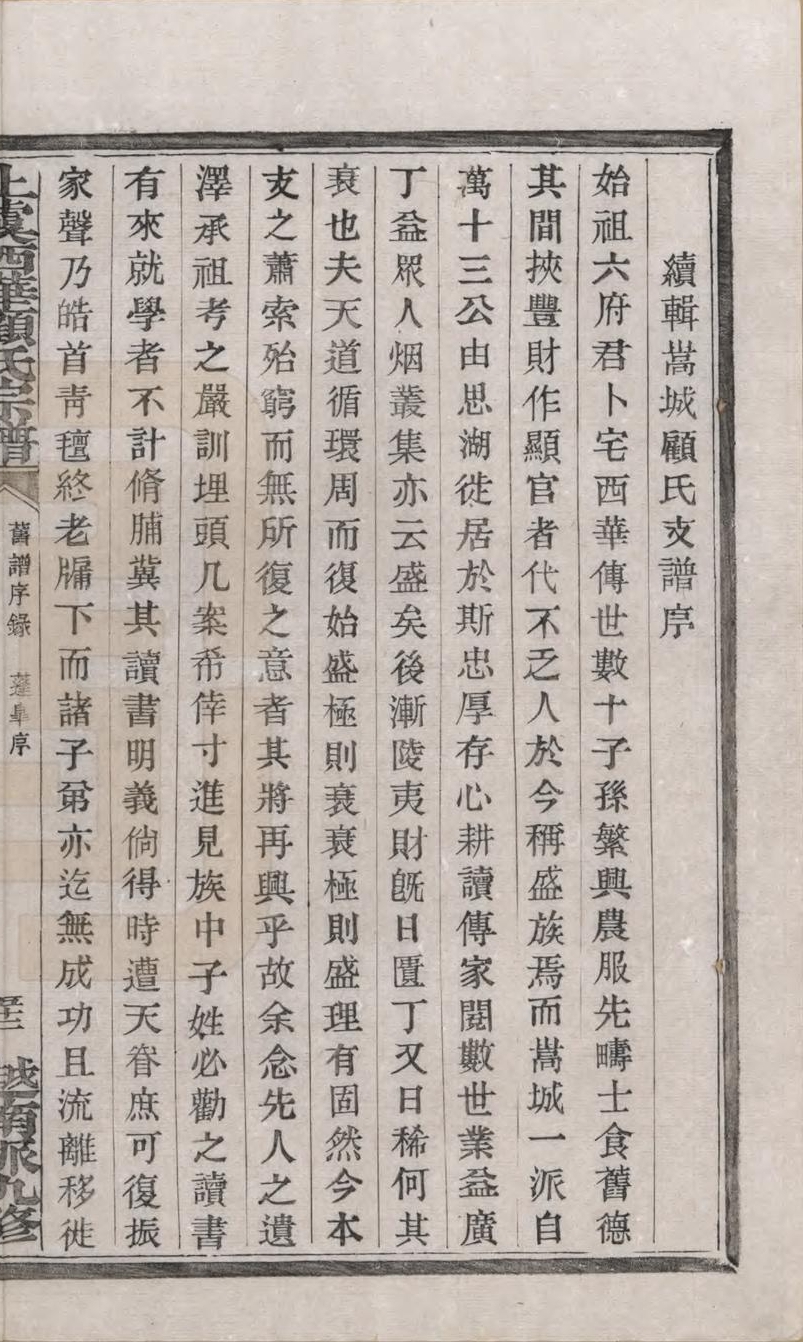 續輯嵩城顧氏支譜序
始祖六府君卜宅西華傳世數十子孫繁興農服先疇士食舊德
其間挾豐財作顯官者代不乏人於今稱盛族焉而嵩城一派自
萬十三公由思湖徙居於斯忠厚存心耕讀傳家閱數世業益廣
丁益眾人烟叢集亦云盛矣後漸陵夷財旣日匱丁又日稀何其
衰也夫天道循環周而復始盛極則衰衰極則盛理有固然今本
支之蕭索殆窮而無所復之意者其將再興乎故余念先人之遺
澤承祖考之嚴訓埋頭几案希倖寸進見族中子姓必勸之讀書
有來就學者不計脩脯冀其讀書明義倘得時遭天眷庶可復振
家聲乃皓首靑氊終老牖下而諸子弟亦迄無成功且流離移徙
上虞西華顧氏宗譜
舊譜序錄
序